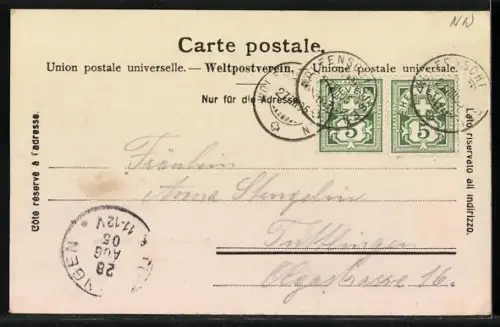 NW
Carte postale.
Union postale universelle. — Weltpostverein. — Unione postale universale.
Nur für die Adresse.
Côté réservé à l'adresse.
Lato riservato all indirizzo.
HELVETIA
5
5
Fräulein
Anna Stengelin
Tuttlingen
Olgastrasse 16.
28
AUG
05
11-12V